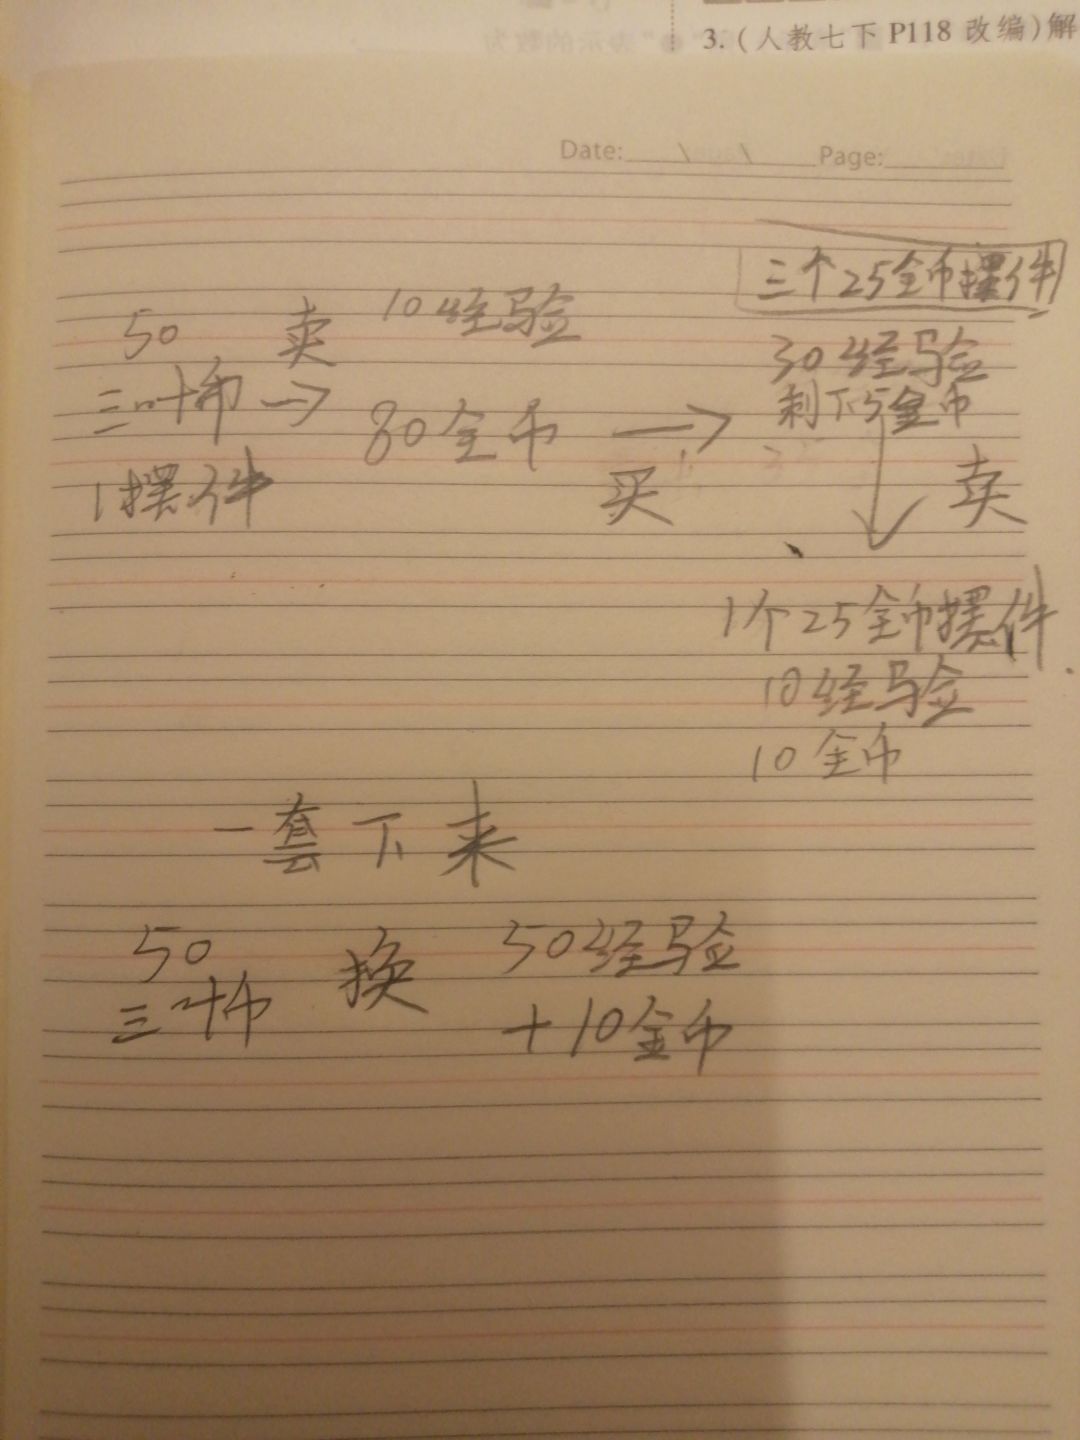 3.(人教七下P118 改编)解
Date: / / Page:
三个25金币摆件
50 卖 10经验
三叶币 → 80金币 → 30经验
剩下5金币
1摆件 买 卖
1个25金币摆件
10经验
10金币
一套下来
50 换 50经验
三叶币 +10金币